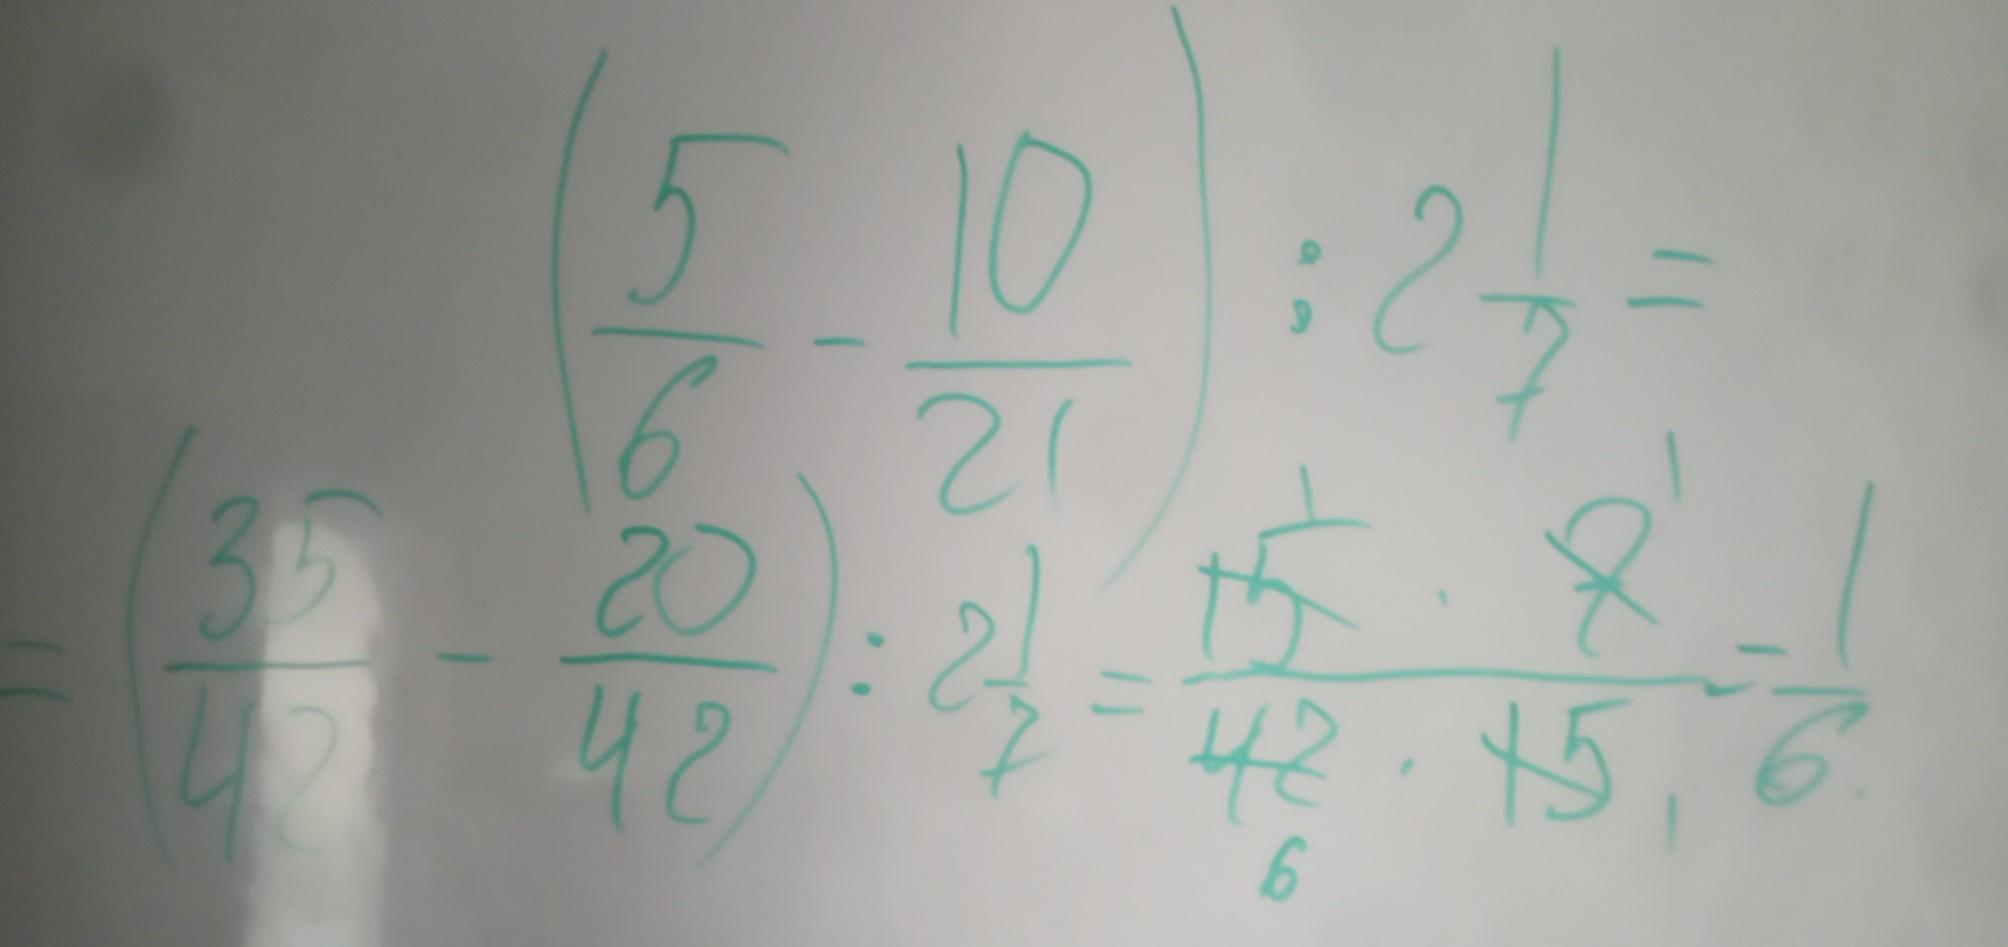 (5/6 - 10/21) : 2 1/7 =
= (35/42 - 20/42) : 2 1/7 = (15 · 7)/(42 · 15) = 1/6.